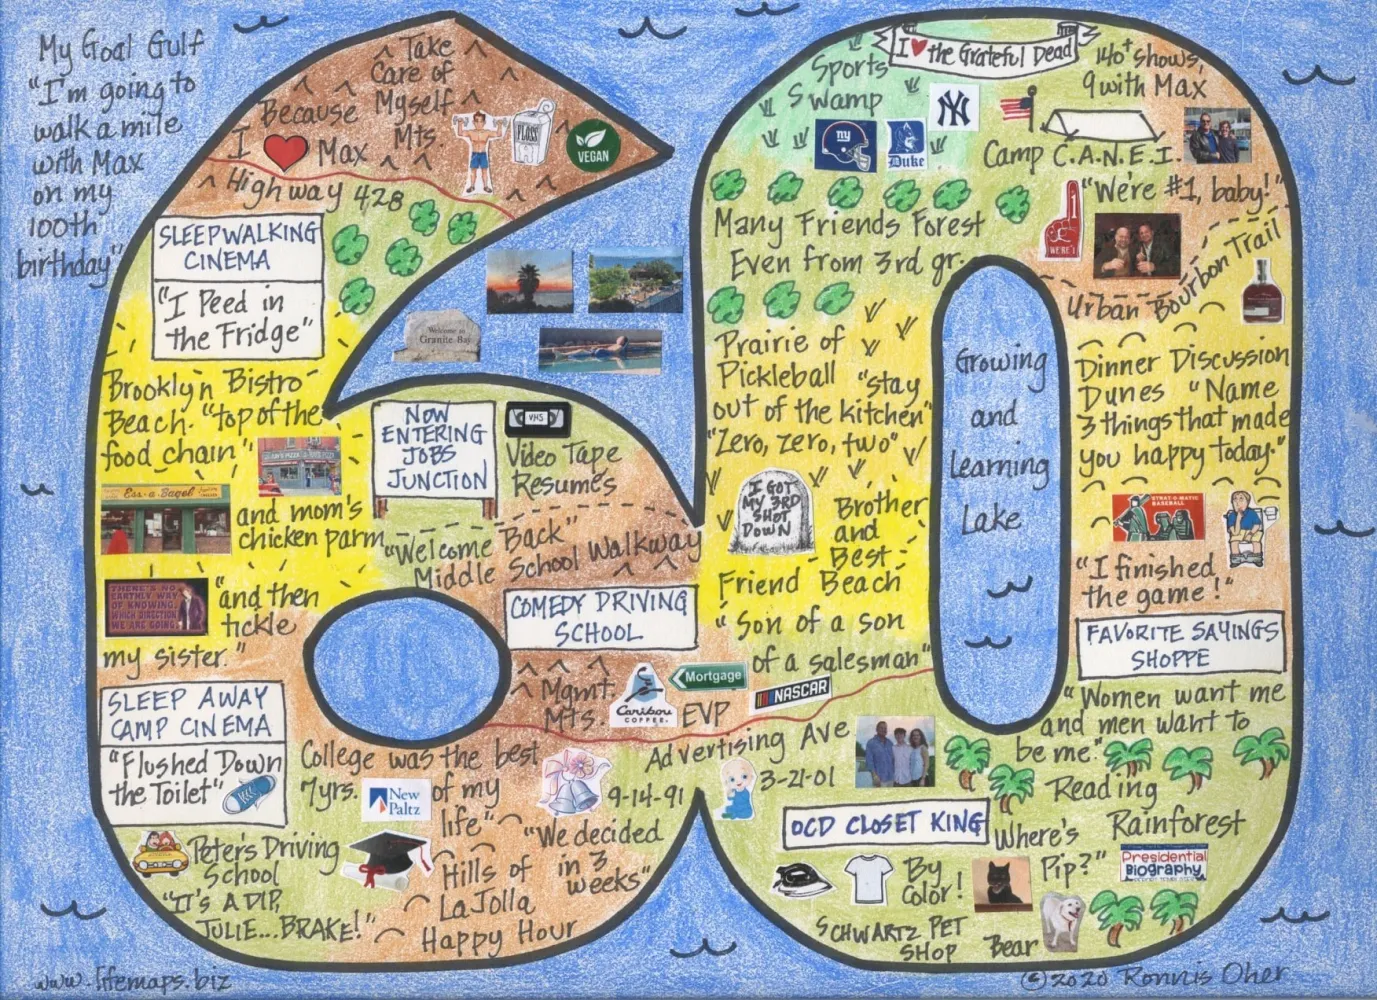 My Goal Gulf
"I'm going to
walk a mile
with Max
on my
100th
birthday"
Take
Care of
Myself
Mts.
Because
I Max
FLOSS
VEGAN
Highway 428
SLEEPWALKING
CINEMA
"I Peed in
the Fridge"
Welcome to
Granite Bay
Brooklyn Bistro
Beach. "top of the
food chain"
Ess-a-Bagel
and mom's
chicken parm
THERE'S NO
EARTHLY WAY
OF KNOWING
WHICH DIRECTION
WE ARE GOING
"and then
tickle
my sister."
NOW
ENTERING
JOBS
JUNCTION
VHS
Video Tape
Resumes
"Welcome Back"
Middle School Walkway
COMEDY DRIVING
SCHOOL
Mgmt.
Mts.
Caribou
COFFEE
Mortgage
EVP
NASCAR
SLEEP AWAY
CAMP CINEMA
"Flushed Down
the Toilet"
College was the best
7 yrs. of my
life"
New
Paltz
9-14-91
"We decided
in 3
weeks"
Peter's Driving
School
"IT'S A DIP,
JULIE...BRAKE!"
Hills of
LaJolla
Happy Hour
I the Grateful Dead
140+ shows,
9 with Max
Sports
Swamp
ny
Duke
NY
Camp C.A.N.E.I.
"We're #1, baby!"
1
WE'RE 1
Many Friends Forest
Even from 3rd gr.
Urban Bourbon Trail
Prairie of
Pickleball "stay
out of the kitchen"
"Zero, zero, two"
I GOT
MY 3RD
SHOT
DOWN
Brother
and
Best
Friend Beach
"Son of a son
of a salesman"
Growing
and
Learning
Lake
Dinner Discussion
Dunes "Name
3 things that made
you happy today."
STRAT-O-MATIC
BASEBALL
"I finished
the game!"
FAVORITE SAYINGS
SHOPPE
"Women want me
and men want to
be me."
Advertising Ave
3-21-01
OCD CLOSET KING
By
Color!
Reading
Rainforest
Where's
Pip?"
Presidential
Biography
SCHWARTZ PET
SHOP
Bear
www.lifemaps.biz
© 2020 Ronnis Oher